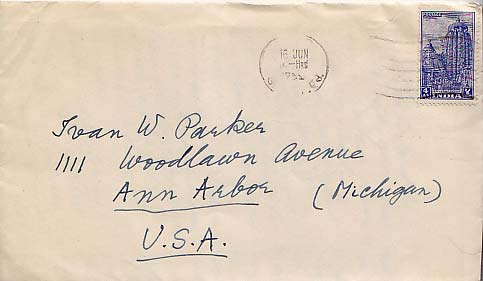 16 JUN
POSTAGE
4 As
INDIA
Ivan W. Parker
1111 Woodlawn Avenue
Ann Arbor (Michigan)
U.S.A.